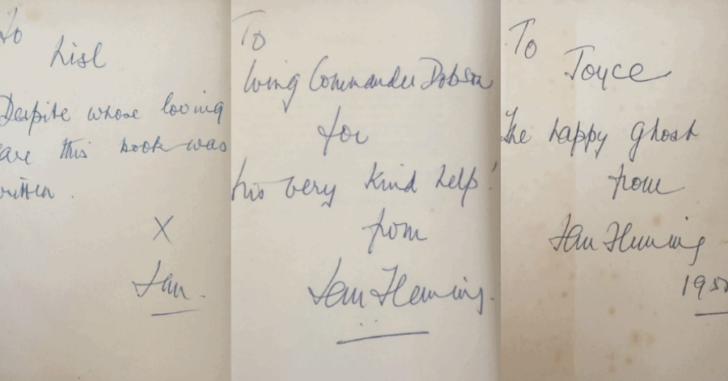 To
Lisl
Despite whose loving
care this book was
written.
X
Ian.
To
Wing Commander Dobson
for
his very kind help!
from
Ian Fleming.
To
Joyce
The happy ghost
from
Ian Fleming
195